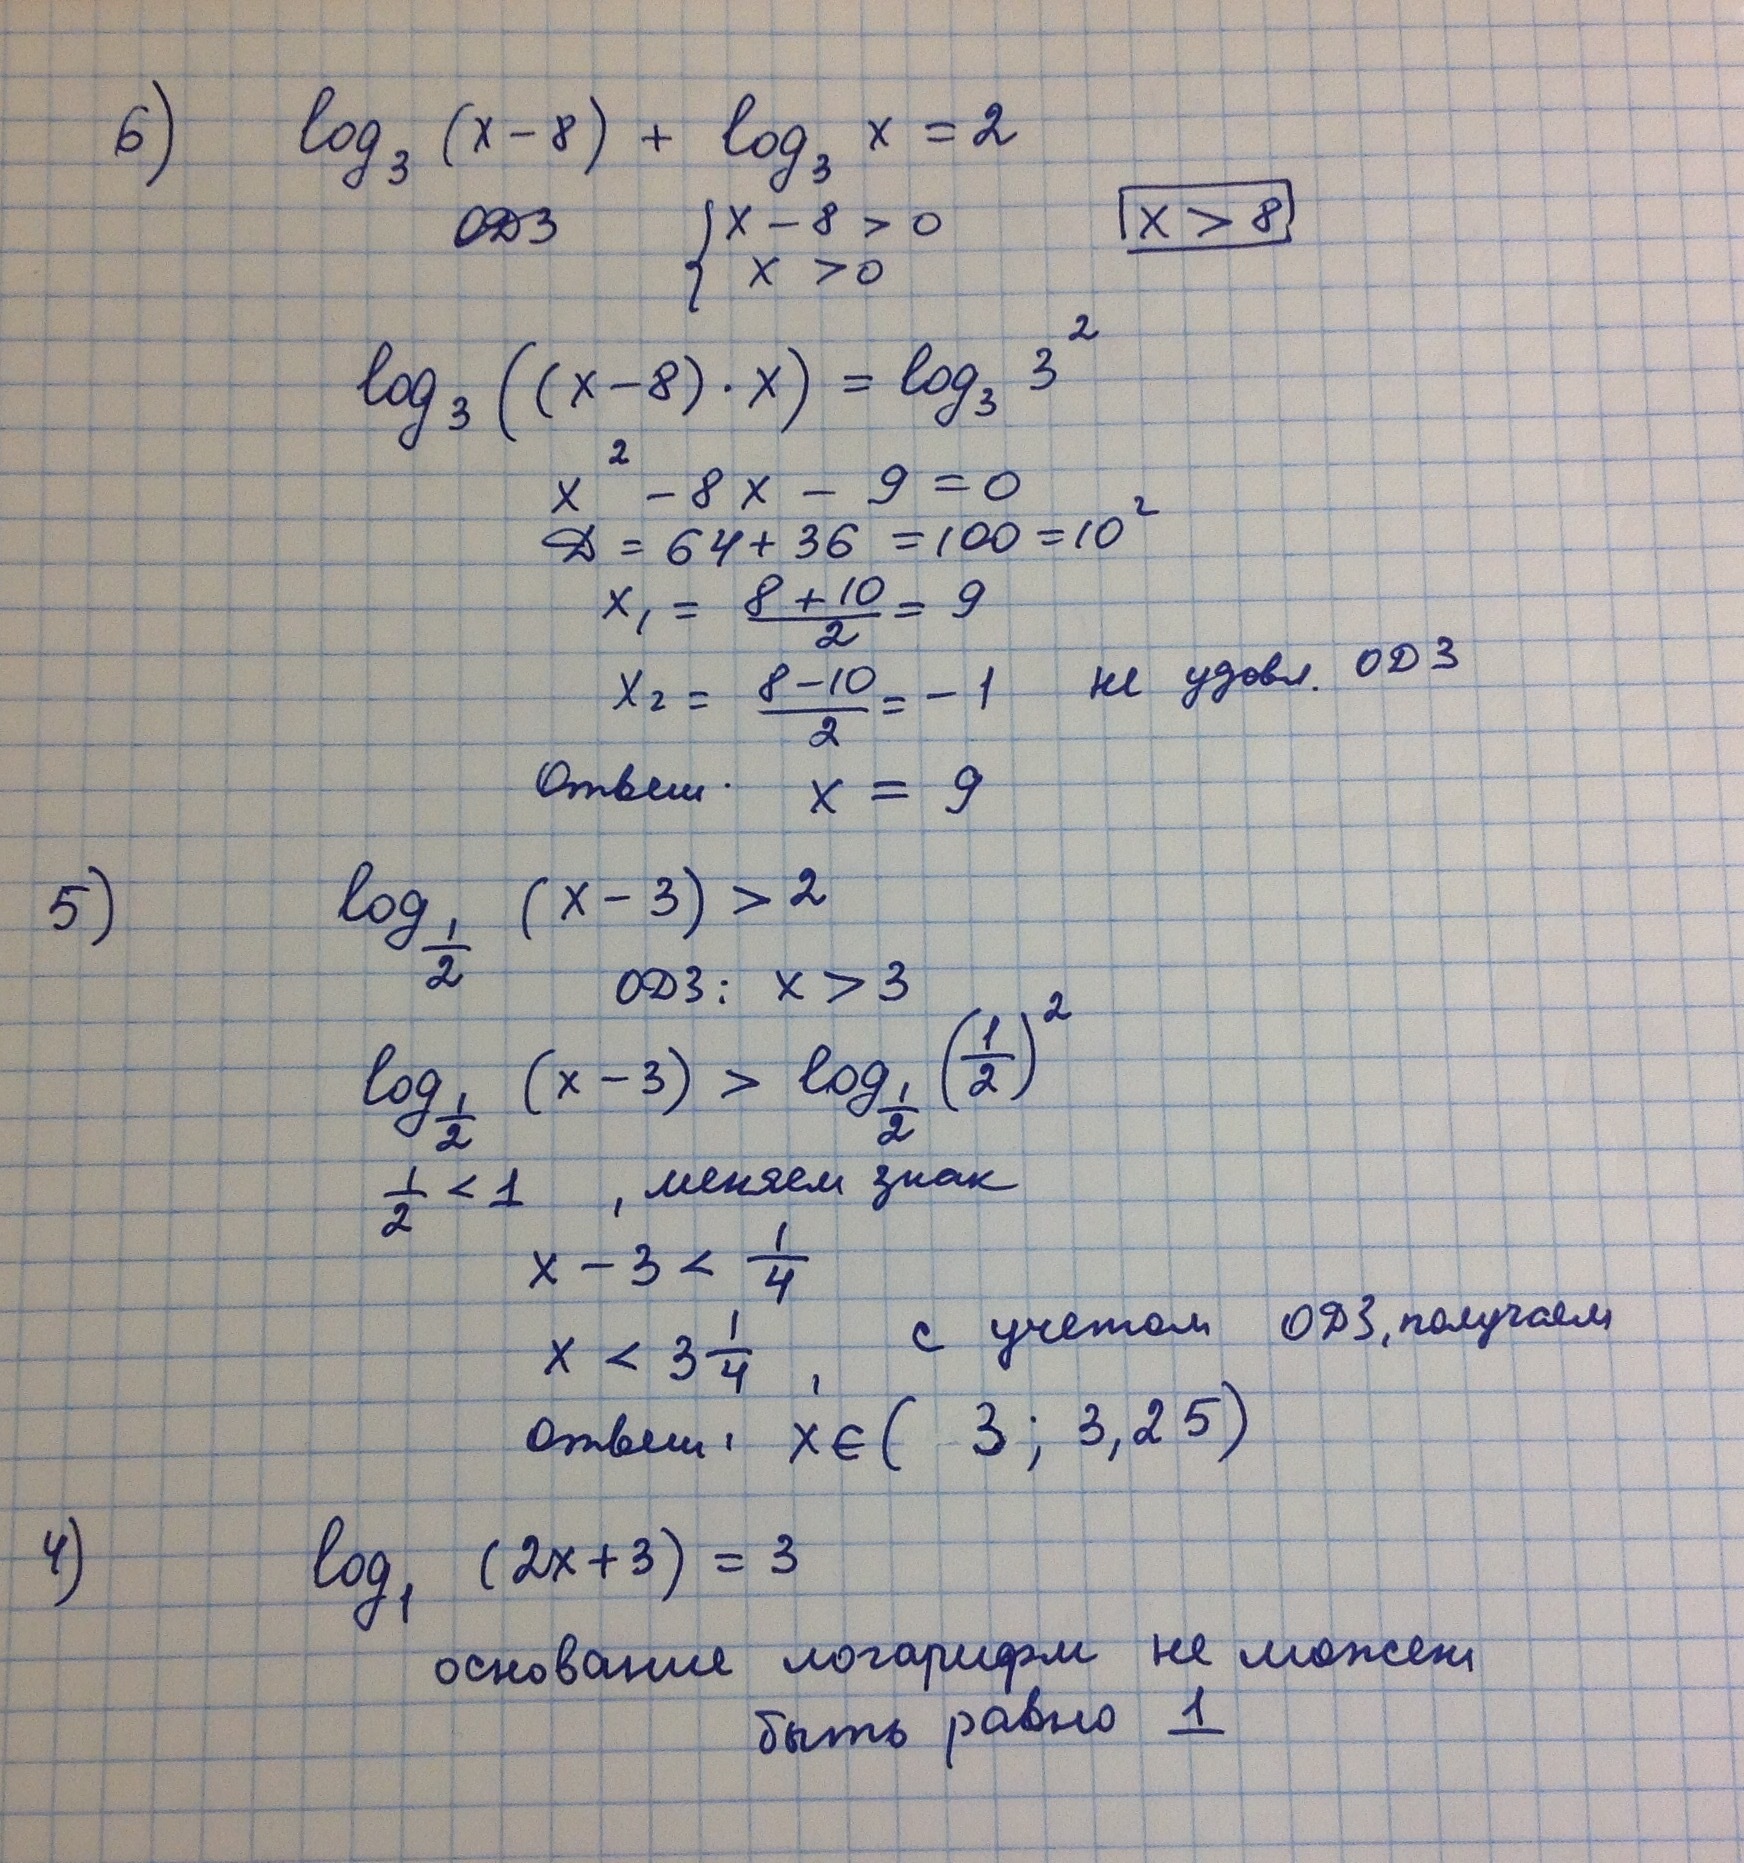 6) log₃ (x-8) + log₃ x = 2
ОДЗ { x - 8 > 0 x > 8
x > 0
log₃ ((x-8)·x) = log₃ 3²
x² - 8x - 9 = 0
D = 64 + 36 = 100 = 10²
x₁ = (8+10)/2 = 9
x₂ = (8-10)/2 = -1 не удовл. ОДЗ
Ответ. x = 9
5) log_{1/2} (x-3) > 2
ОДЗ: x > 3
log_{1/2} (x-3) > log_{1/2} (1/2)²
1/2 < 1 , меняем знак
x - 3 < 1/4
x < 3 1/4 , с учетом ОДЗ, получаем
Ответ: x ∈ ( 3 ; 3,25)
4) log₁ (2x+3) = 3
основание логарифм не может
быть равно 1